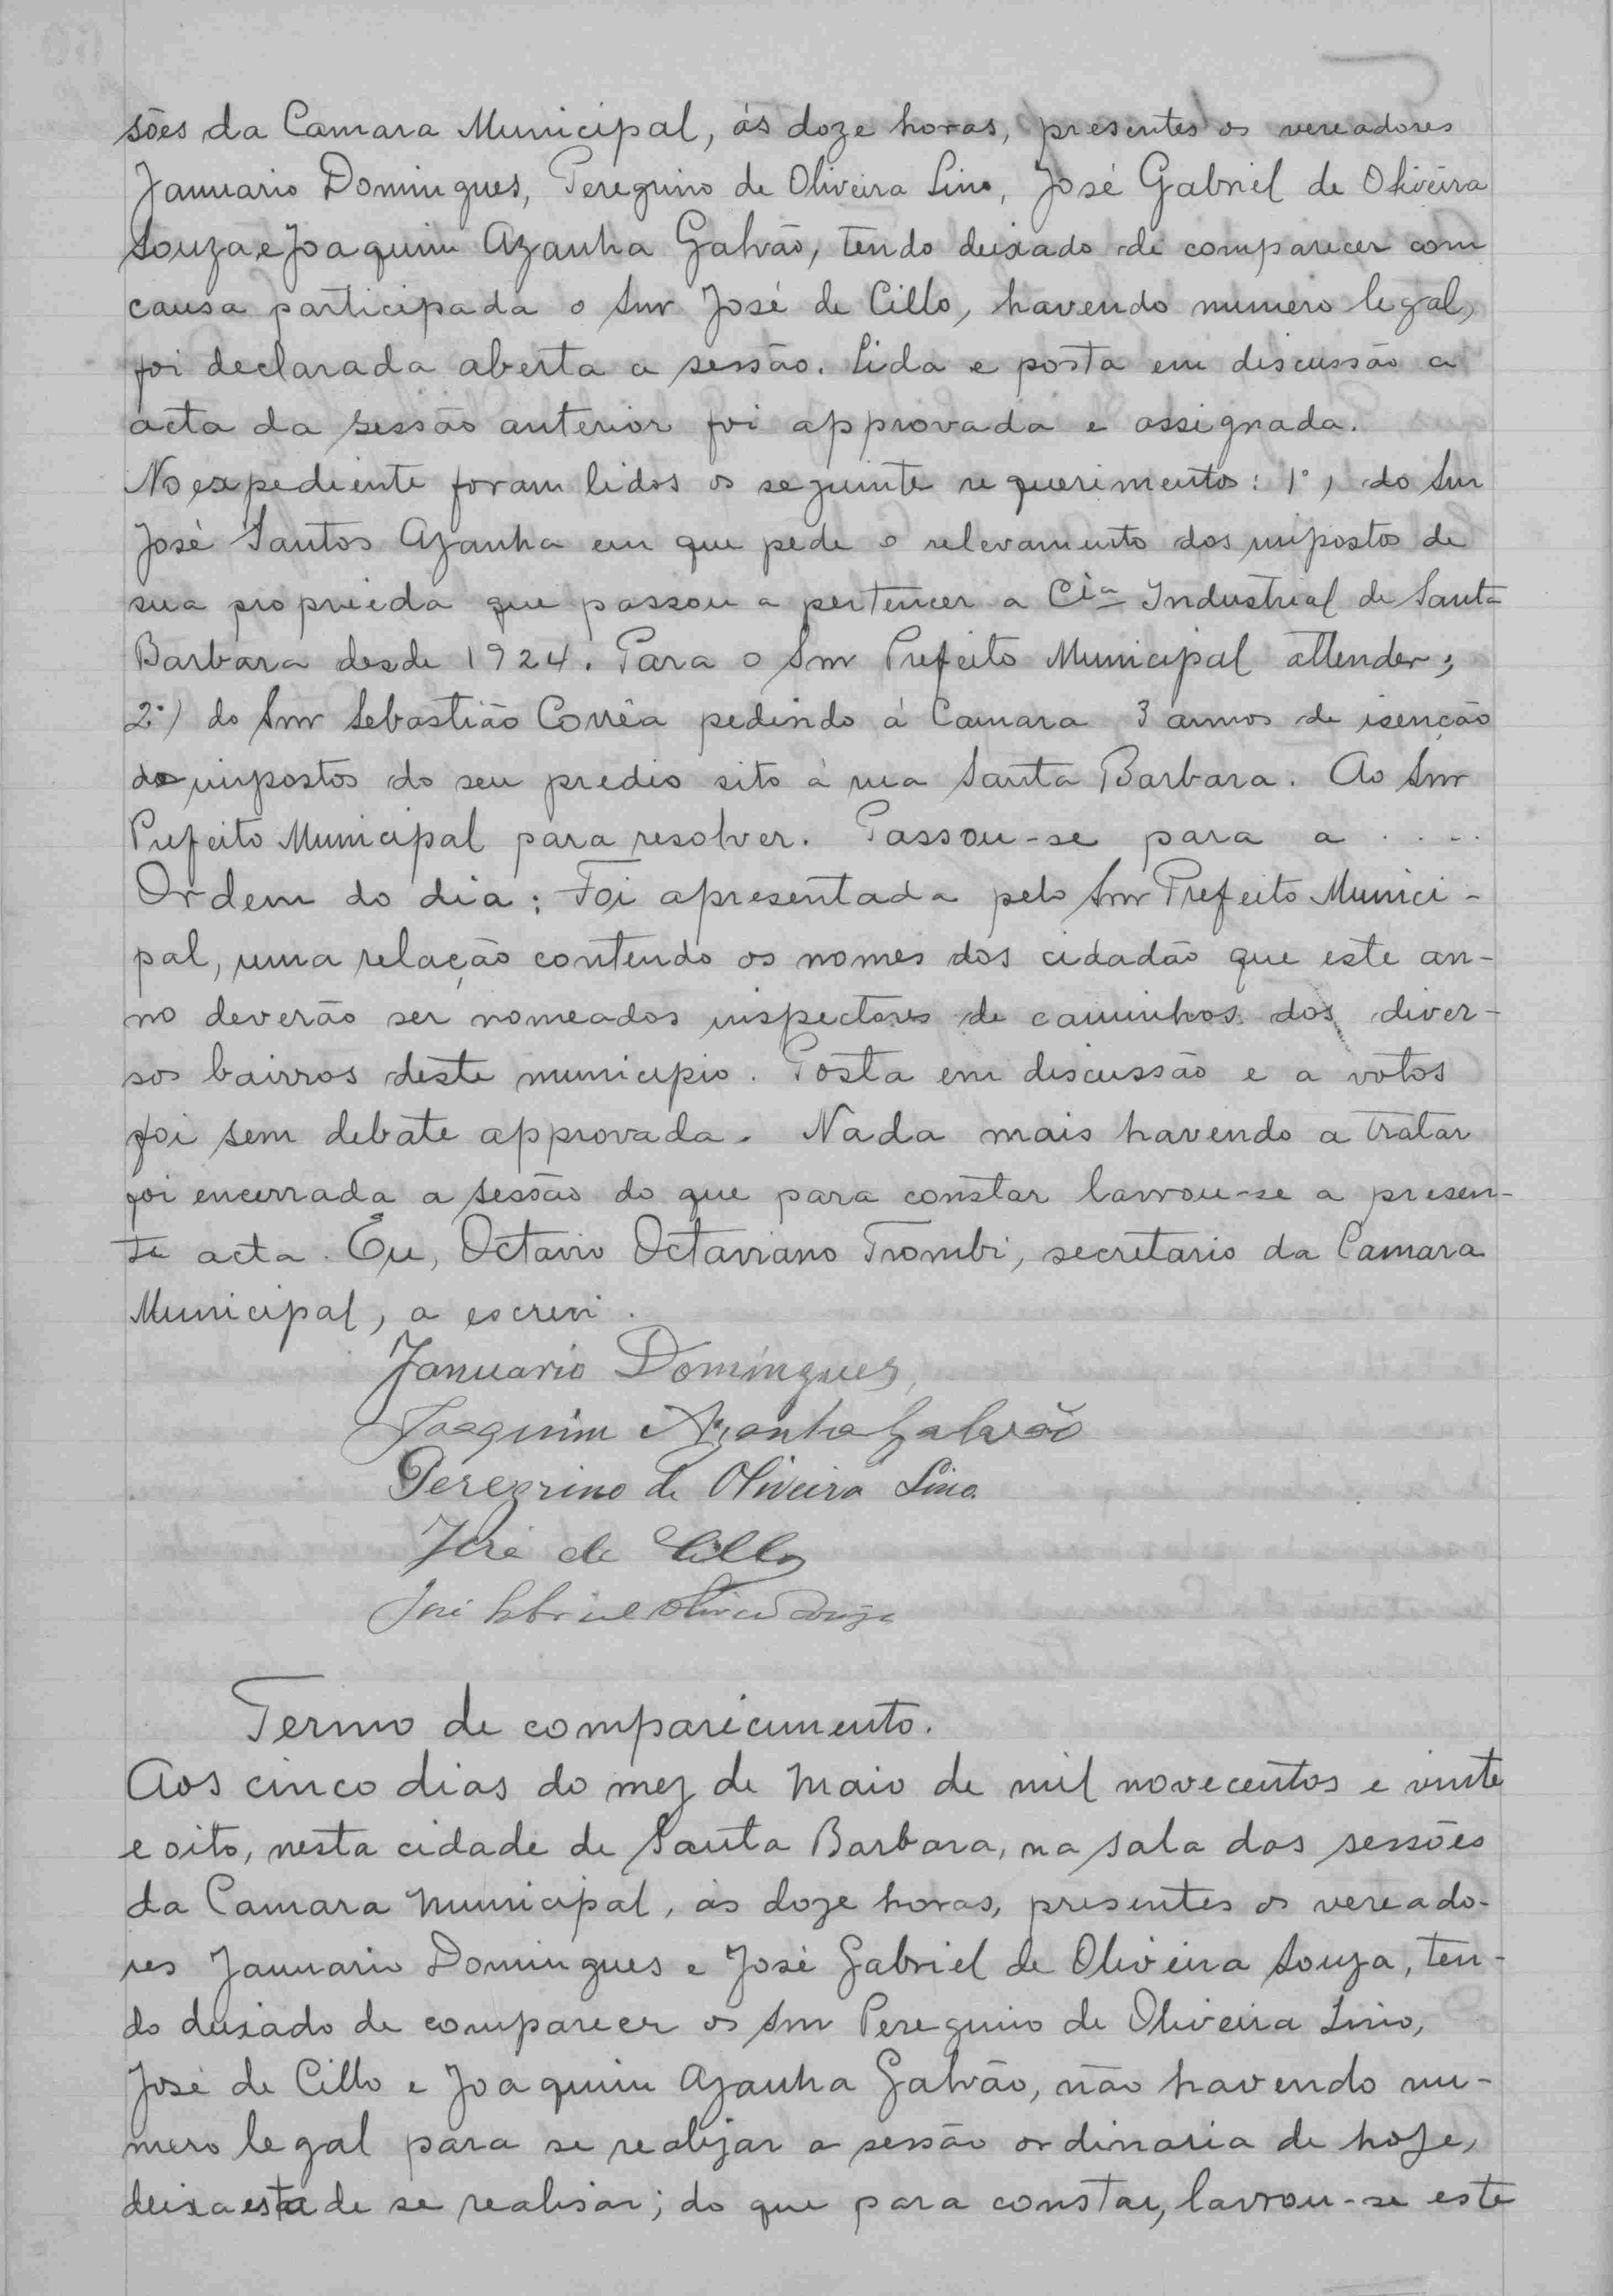 sões da Camara Municipal, ás doze horas, presentes os vereadores
Januario Domingues, Peregrino de Oliveira Lino, José Gabriel de Oliveira
Souza e Joaquim Azanha Galvão, tendo deixado de comparecer com
causa participada o Snr José de Cillo, havendo numero legal,
foi declarada aberta a sessão. Lida e posta em discussão a
acta da sessão anterior foi approvada e assignada.
No expediente foram lidos os seguinte requerimentos: 1º, do Snr
José Santos Azanha em que pede o relevamento dos impostos de
sua proprieda que passou a pertencer a Cia Industrial de Santa
Barbara desde 1924. Para o Snr Prefeito Municipal attender;
2º) do Snr Sebastião Corrêa pedindo á Camara 3 annos de isenção
dos impostos do seu predio sito á rua Santa Barbara. Ao Snr
Prefeito Municipal para resolver. Passou-se para a ....
Ordem do dia: Foi apresentada pelo Snr Prefeito Munici-
pal, uma relação contendo os nomes dos cidadão que este an-
no deverão ser nomeados inspectores de caminhos dos diver-
sos bairros deste municipio. Posta em discussão e a votos
foi sem debate approvada. Nada mais havendo a tratar
foi encerrada a sessão do que para constar lavrou-se a presen-
te acta. Eu, Octavio Octaviano Trombi, secretario da Camara
Municipal, a escrevi.
Januario Domingues,
Joaquim Azanha Galvão
Peregrino de Oliveira Lino.
José de Cillo
José Gabriel Oliveira Souza
Termo de comparecimento.
Aos cinco dias do mez de Maio de mil novecentos e vinte
e oito, nesta cidade de Santa Barbara, na sala das sessões
da Camara Municipal, ás doze horas, presentes os vereado-
res Januario Domingues e José Gabriel de Oliveira Souza, ten-
do deixado de comparecer os Snr Peregrino de Oliveira Lino,
José de Cillo e Joaquim Azanha Galvão, não havendo nu-
mero legal para se realizar a sessão ordinaria de hoje,
deixa esta de se realisar; do que para constar, lavrou-se este